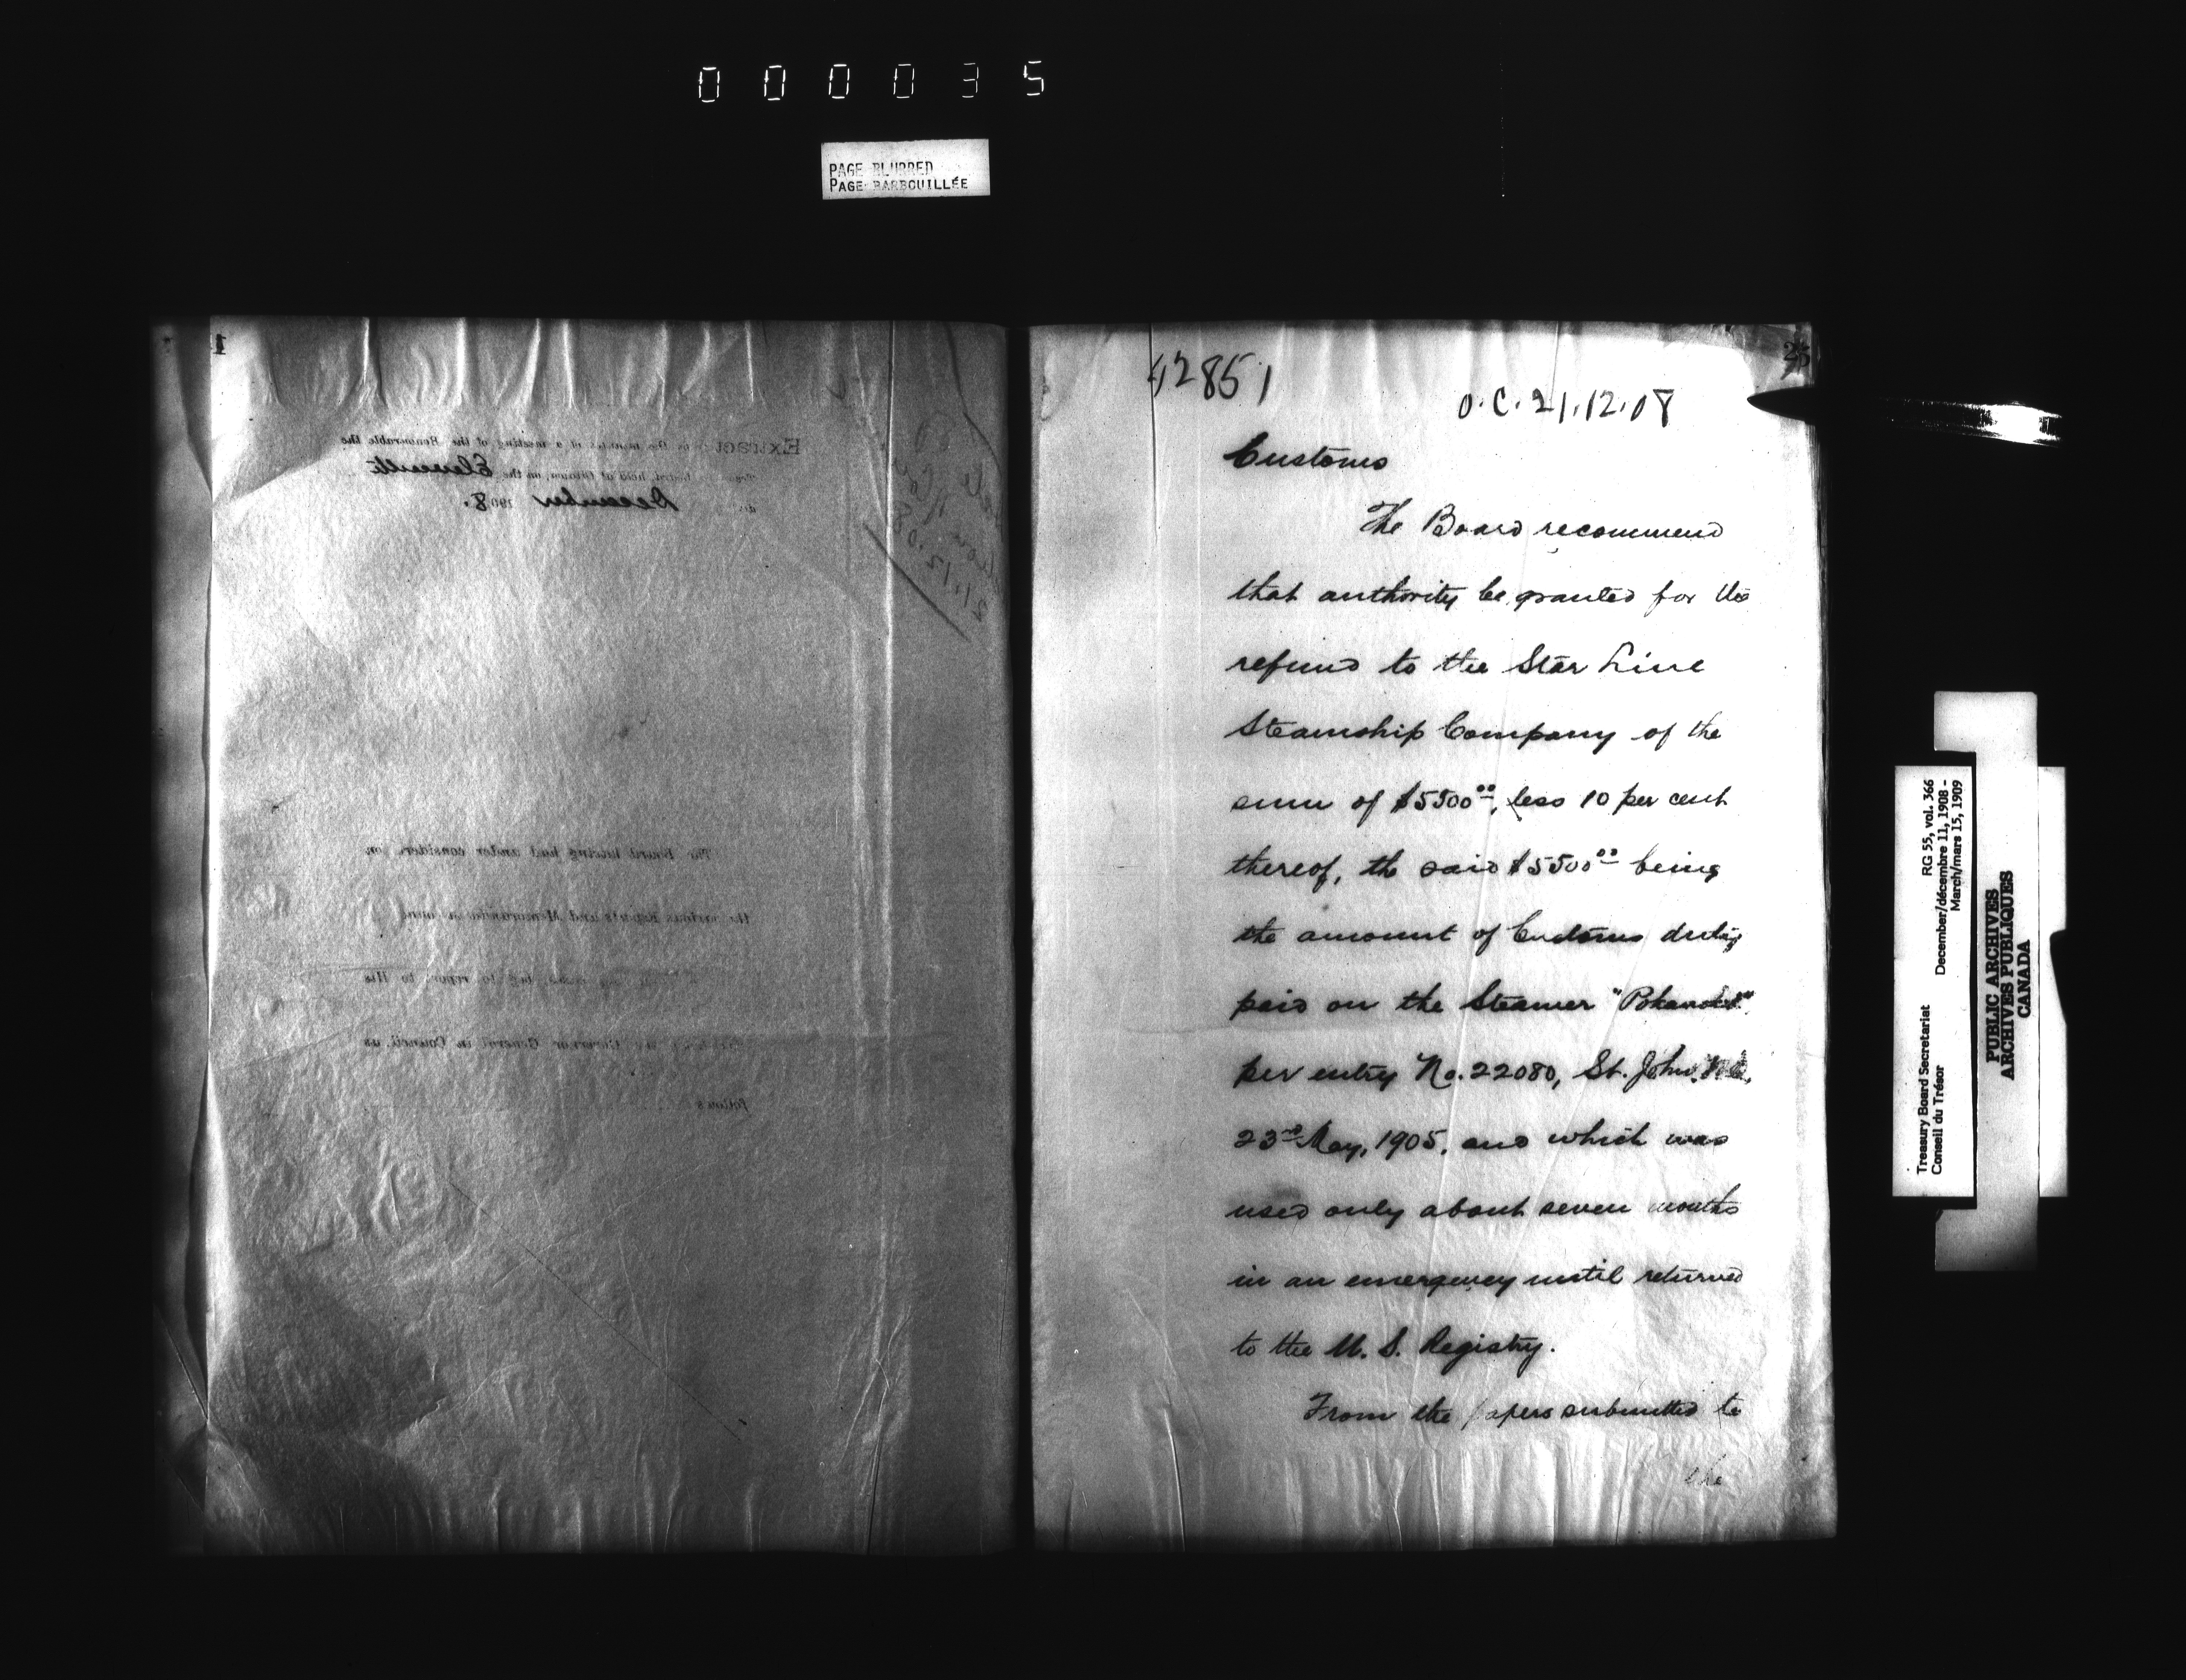 000035
PAGE BLURRED
PAGE BARBOUILLÉE
1
Extract in the minutes of a meeting of the Honourable the
Board, held at Ottawa, on the Eleventh
December 1908.
21.12.08
The Board having had under consideration
the various Reports and Memoranda
to report to His
Governor General in Council, as
follows
25
42851
O.C. 21.12.08
Customs
The Board recommend
that authority be granted for the
refund to the Star Line
Steamship Company of the
sum of $5500.00, less 10 per cent
thereof, the said $5500.00 being
the amount of Customs duty
paid on the Steamer "Pokanoket"
per entry No. 22080, St. John, N.B.
23rd May, 1905, and which was
used only about seven months
in an emergency until returned
to the U.S. Registry.
From the papers submitted to
the
Treasury Board Secretariat RG 55, vol. 366
Conseil du Trésor December/décembre 11, 1908 -
March/mars 15, 1909
PUBLIC ARCHIVES
ARCHIVES PUBLIQUES
CANADA